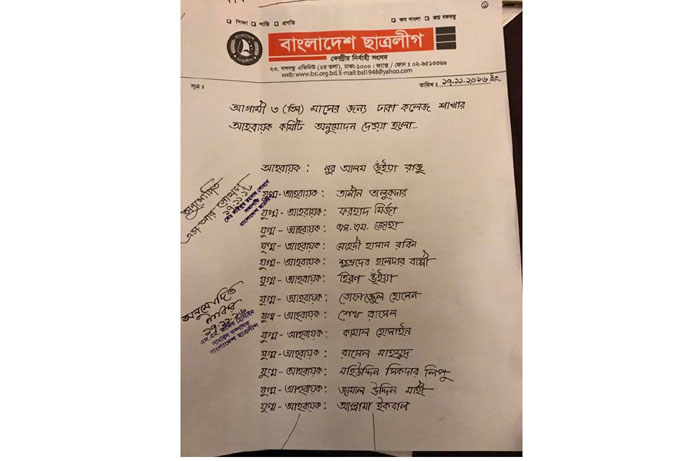 □ শিক্ষা □ শান্তি □ প্রগতি
□ জয় বাংলা □ জয় বঙ্গবন্ধু
বাংলাদেশ ছাত্রলীগ
কেন্দ্রীয় নির্বাহী সংসদ
২৩, বঙ্গবন্ধু এভিনিউ (২য় তলা), ঢাকা-১০০০। ফ্যাক্স / ফোন ঃ ০২-৯৫১৩৩৬৬
web:www.bsl.org.bd.E-mail:bsl1948@yahoo.com
সূত্র ঃ
তারিখ ঃ ১৭.১১.২০১৬ ইং
আগামী ৩ (তিন) মাসের জন্য ঢাকা কলেজ শাখার
আহবায়ক কমিটি অনুমোদন দেওয়া হলো...
আহবায়ক : নুর আলম ভুঁইয়া রাজু
যুগ্ম-আহবায়ক: তানীন তালুকদার
যুগ্ম-আহবায়ক: ফরহাদ মির্জা
যুগ্ম-আহবায়ক: এস.এম. জোহা
যুগ্ম-আহবায়ক: মেহেদী হাসান রবিন
যুগ্ম-আহবায়ক: হালদার বাপ্পী
যুগ্ম-আহবায়ক: হিরণ ভুঁইয়া
যুগ্ম-আহবায়ক: তোফাজ্জেল হোসেন
যুগ্ম-আহবায়ক: শেখ রাসেল
যুগ্ম-আহবায়ক: কামাল হোসাইন
যুগ্ম-আহবায়ক: রাসেল মাহমুদ
যুগ্ম-আহবায়ক: মহিউদ্দিন সিকদার লিপু
যুগ্ম-আহবায়ক: জামাল উদ্দিন মাহী
যুগ্ম-আহবায়ক: আল্লামা ইকবাল
অনুমোদিত
১৭.১১.১৬
বাংলাদেশ ছাত্রলীগ
অনুমোদিত
জাকির
১৭.১১.১৬
এস.এম. জাকির হোসাইন
সাধারণ সম্পাদক
বাংলাদেশ ছাত্রলীগ